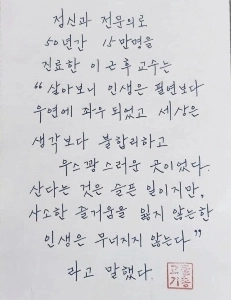 정신과 전문의로
50년간 15만명을
진료한 이근후 교수는
"살아보니 인생은 필연보다
우연에 좌우 되었고 세상은
생각보다 불합리하고
우스꽝스러운 곳이었다.
산다는 것은 슬픈 일이지만,
사소한 즐거움을 잃지 않는한
인생은 무너지지 않는다"
라고 말했다.